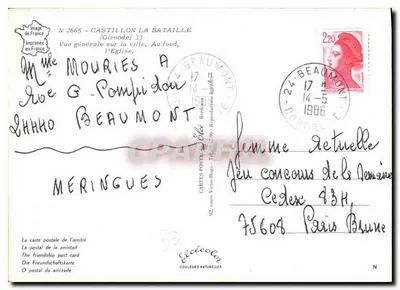 Image
de France
Imprimée
en France
N. 2665 - CASTILLON LA BATAILLE
(Gironde) 33
Vue générale sur la ville, Au fond,
l'Eglise.
Mme MOURIES A
Rue G. Pompidou
24440 BEAUMONT
MERINGUES
La carte postale de l'amitié
La postal de la amistad
The friendship post card
Die Freundschaftskarte
O postal da amizade
Elcécolor
COULEURS NATURELLES
CARTES POSTALES
BEAUMONT
17 H
14-5
2,20
24-BEAUMONT
17 H
14-5
1986
Femme Actuelle
Jeu concours de la Semaine
Cedex 83H,
75608 Paris Brune
N